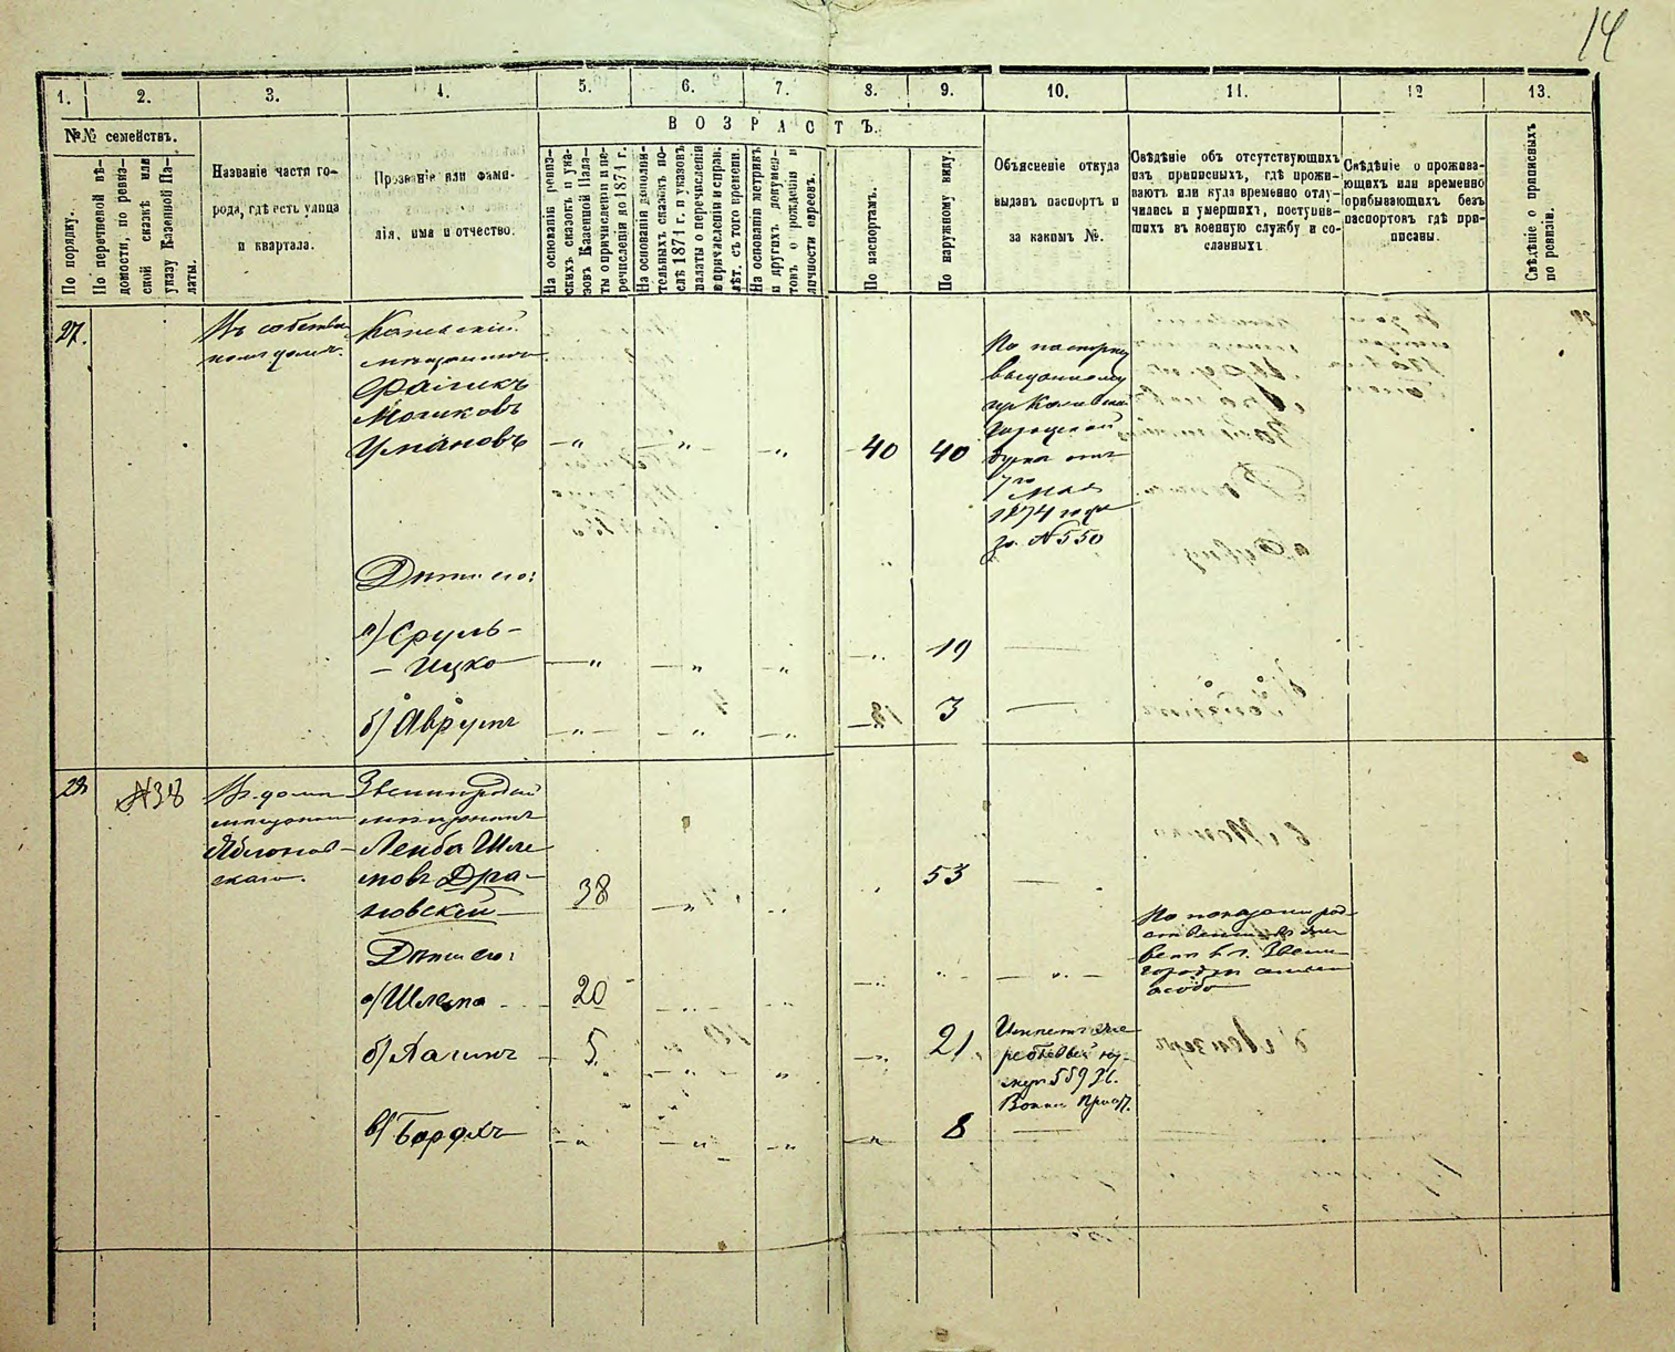 14
1. 2. 3. 4. 5. 6. 7. 8. 9. 10. 11. 12 13.
№№ семействъ.
По порядку.
По перечневой вѣ-
домости, по ревиз-
ской сказкѣ или
указу Казенной Па-
латы.
Названіе части го-
рода, гдѣ есть улица
и квартала.
Прозваніе или фами-
лія, имя и отчество.
ВОЗРАСТЪ.
На основаніи ревиз-
скихъ сказокъ и ука-
зовъ Казенной Пала-
ты о причисленіи и пе-
речисленіи до 1871 г.
На основаніи дополни-
тельныхъ сказокъ по-
слѣ 1871 г. и указовъ
палаты о перечисленіи
и причисленіи и справ.
лѣт. съ того времени.
На основаніи метрикъ
и другихъ докумен-
товъ о рожденіи и
личности евреевъ.
По паспортамъ.
По наружному виду.
Объясненіе откуда
выданъ паспортъ и
за какимъ №.
Свѣдѣніе объ отсутствующихъ
изъ приписныхъ, гдѣ прожи-
ваютъ или куда временно отлу-
чились и умершихъ, поступив-
шихъ въ военную службу и со-
сланныхъ.
Свѣдѣніе о прожива-
ющихъ или временно
прибывающихъ безъ
паспортовъ гдѣ при-
писаны.
Свѣдѣніе о приписныхъ
по ревизіи.
27.
Въ собствен
номъ домѣ.
Каневскій
мѣщанинъ
Мошковъ
Умановъ
40 40
По паспорту
выданному
изъ Каневской
Городской
Думы отъ
7го Мая
1874 года
за №550
Дѣти его:
а) Сруль-
- Ицко
19
б) Аврумъ
3
28
№38
Въ домѣ
мѣщанина
Яблонов-
скаго.
Звенигородскій
мѣщанинъ
Лейба Шле
мовъ Дра-
новскій
38 53
Дѣти его:
а) Шлема
20
По показанію род-
венъ въ г. Звени-
городкѣ
особо
б) Хаимъ
5. 21
559
в) Борухъ
8